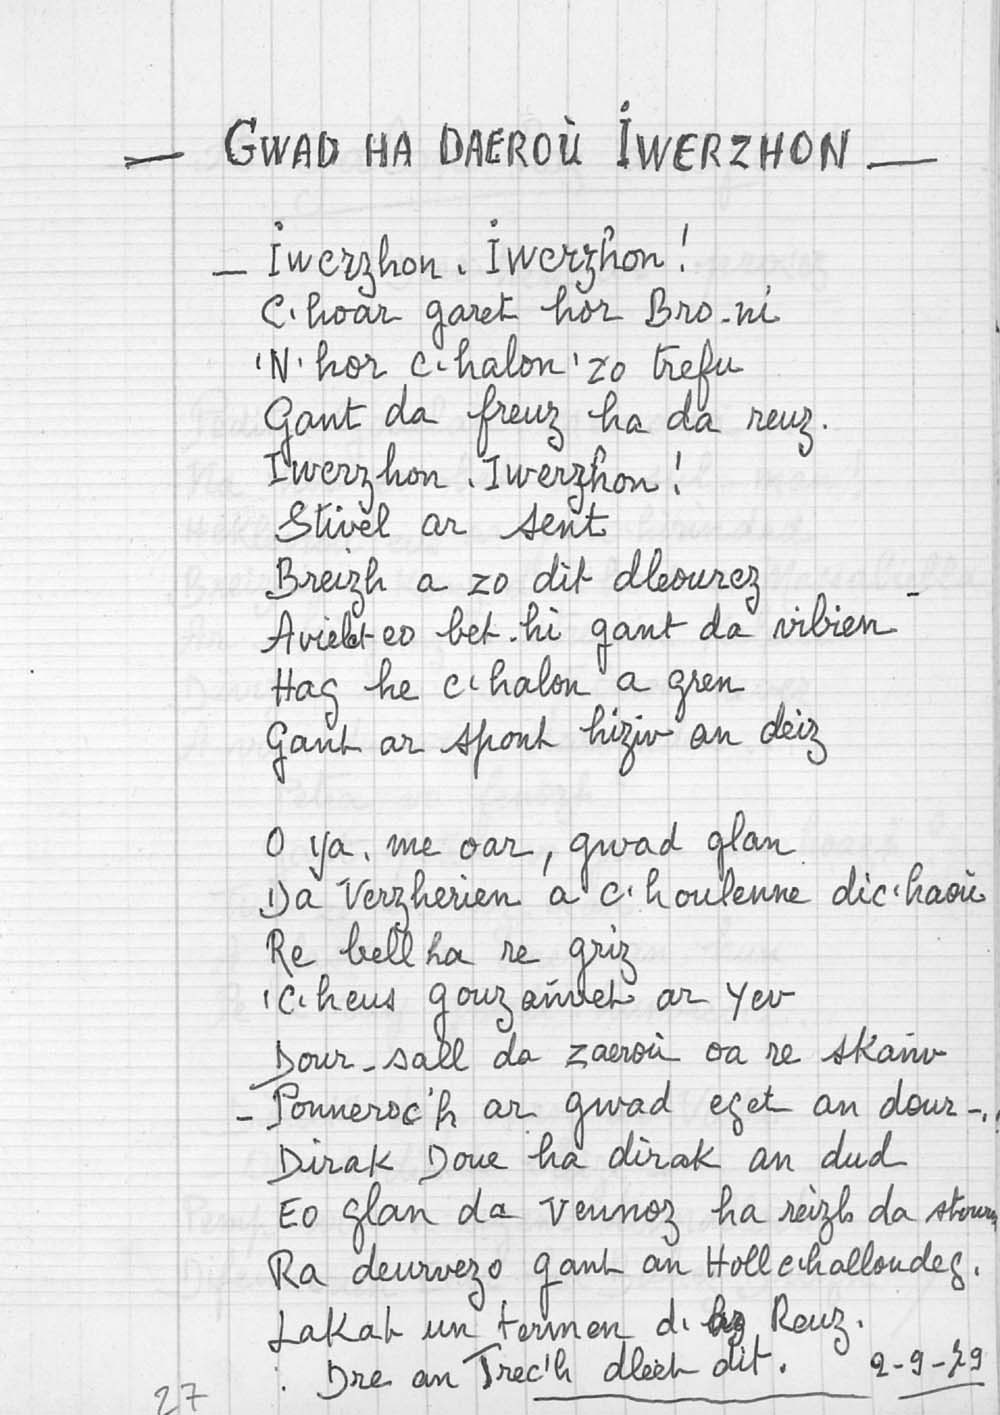 — GWAD HA DAEROÙ IWERZHON —
— Iwerzhon. Iwerzhon!
C'hoar garet hor Bro-ni
'N' hor c'halon 'zo trefu
Gant da freuz ha da reuz.
Iwerzhon. Iwerzhon!
Stivel ar sent
Breizh a zo dit dleourez
Avielet eo bet-hi gant da vibien -
Hag he c'halon a gren
Gant ar spont hiziv an deiz
O ya. me oar, gwad glan
Da Verzherien a c'houlenne dic'haoù
Re bell ha re griz
'C'heus gouzañvet ar Yev
Dour-sall da zaeroù oa re skañv
- Ponneroc'h ar gwad eget an dour -
Dirak Doue ha dirak an dud
Eo glan da vennoz ha reizh da stourm
Ra deurvezo gant an Hollc'halloudeg.
Lakat un termen d' Reuz.
: Dre an Trec'h dleet dit. 2-9-79
27